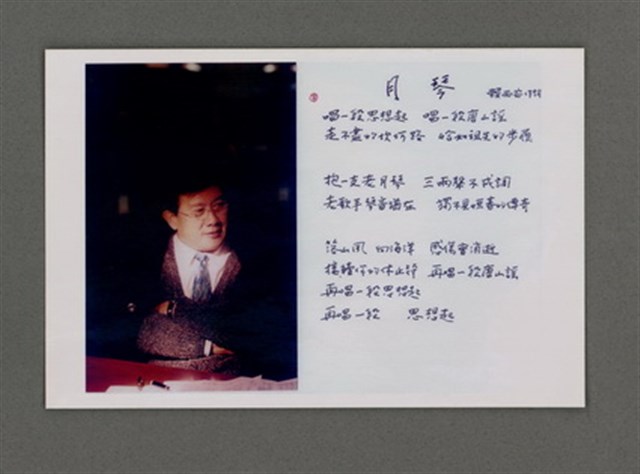 月琴
賴西安
唱一段思想起 唱一段唐山謠
走不盡的坎坷路 恰如祖先的步履
抱一支老月琴 三兩聲不成調
老歌手琴音猶在 獨不見恆春的傳奇
落山風 向海洋 感傷會消逝
接續你的休止符 再唱一段唐山謠
再唱一段思想起
再唱一段 思想起